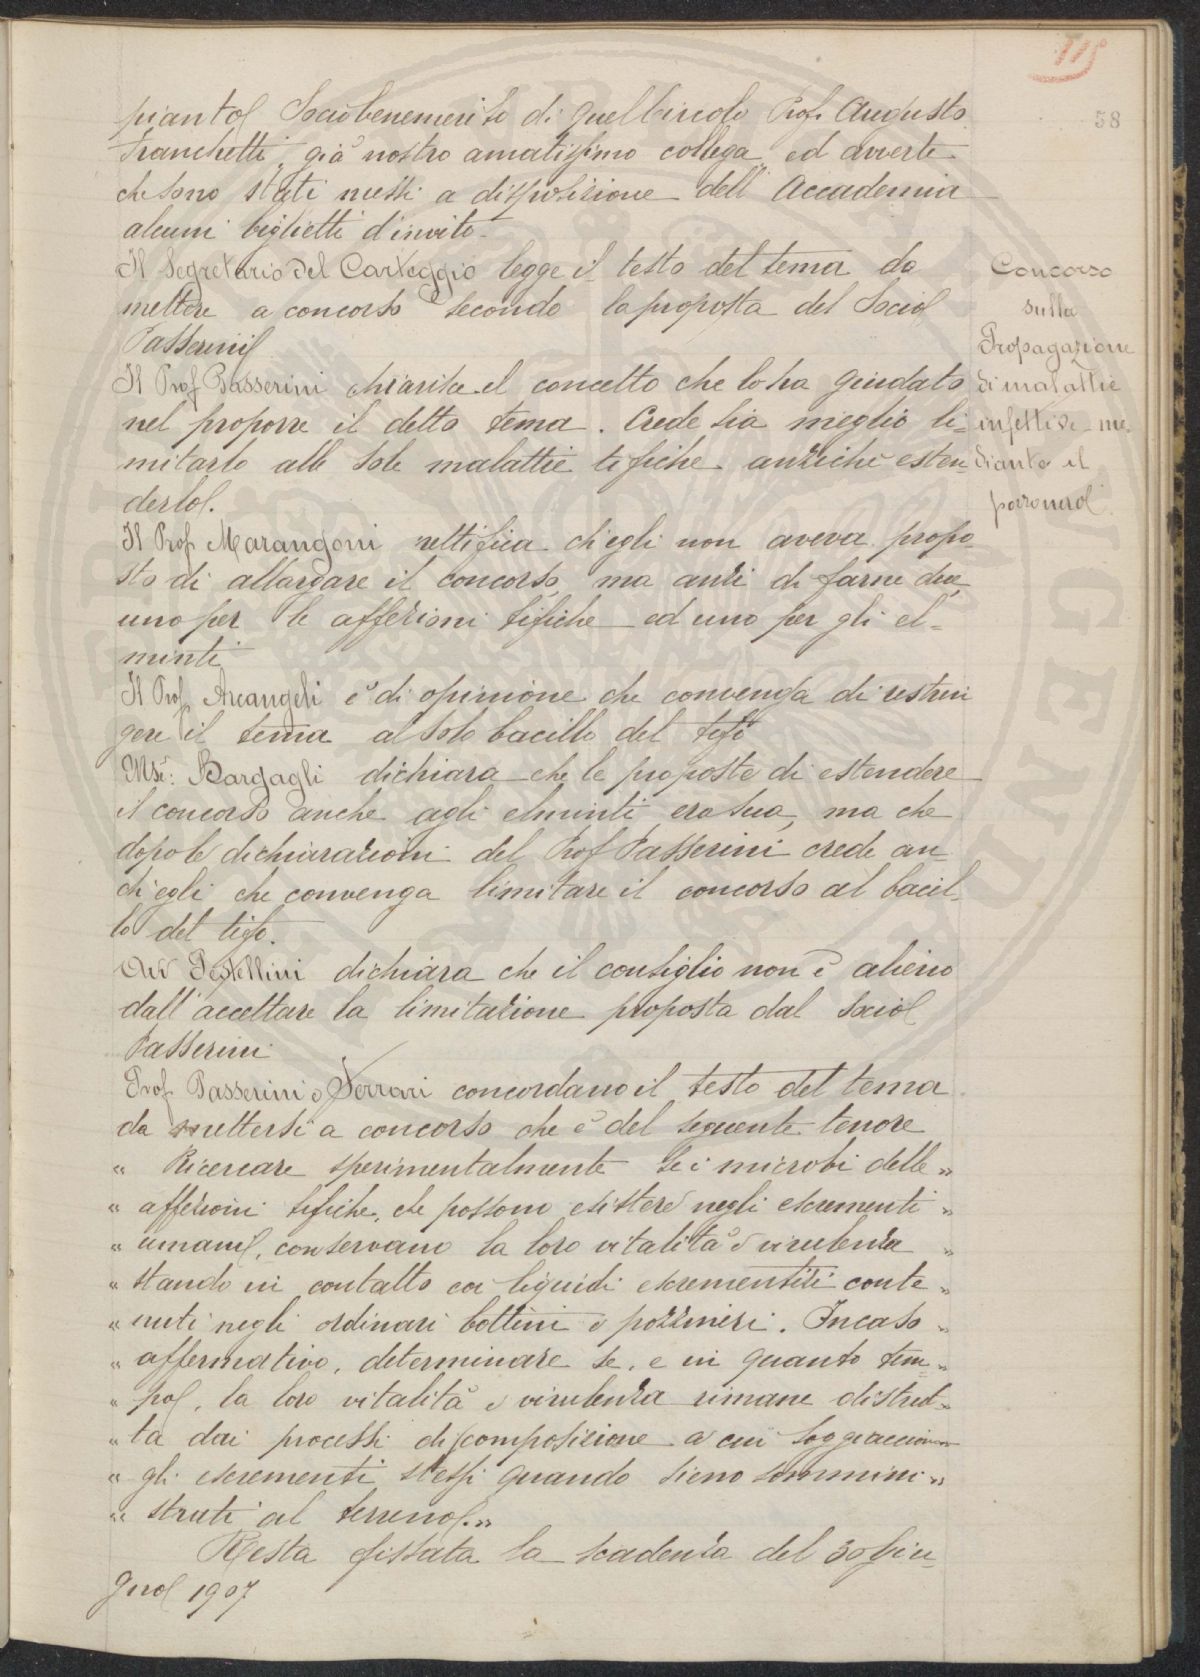 115
58
pianto Socio benemerito di quel Circolo Prof. Augusto
Franchetti, già nostro amatissimo collega, ed averte
che sono stati messi a disposizione dell' Accademia
alcuni biglietti d'invito.
Il Segretario del Carteggio legge il testo del tema da
mettere a concorso secondo la proposta del Socio
Passerini
Il Prof Passerini chiarisce il concetto che lo ha guidato
nel proporre il detto tema. Crede sia meglio li-
mitarlo alle sole malattie tifiche anzichè esten-
derlo.
Il Prof Marangoni rettifica ch'egli non aveva propo-
sto di allargare il concorso, ma anzi di farne due,
uno per le affezioni tifiche ed uno per gli el-
minti
Il Prof Arcangeli è di opinione che convenga di restrin
gere il tema al solo bacillo del tifo
Mse: Bargagli dichiara che la proposta di estendere
il concorso anche agli elminti era sua, ma che
dopo le dichiarazioni del Prof Passerini crede an-
ch'egli che convenga limitare il concorso al bacil-
lo del tifo.
Avv Pestellini dichiara che il consiglio non è alieno
dall' accettare la limitazione proposta dal Socio
Passerini
Prof Passerini e Ferrari concordano il testo del tema
da mettersi a concorso che è del seguente tenore
" Ricercare sperimentalmente se i microbi delle "
" affezioni tifiche, che possono esistere negli escrementi "
" umani, conservano la loro vitalità e virulenza "
" stando in contatto coi liquidi escrementizi conte "
" nuti negli ordinari bottini e pozzi neri. In caso "
" affermativo, determinare se, e in quanto tem- "
" po, la loro vitalità e virulenza rimane distrut- "
" ta dai processi di scomposizione a cui soggiacciono "
" gli escrementi stessi quando sieno sommini- "
" strati al terreno. "
Resta fissata la scadenza del 30 Giu-
gno 1907
Concorso
sulla
Propagazione
di malattie
infettive me-
diante il
pozzo nero